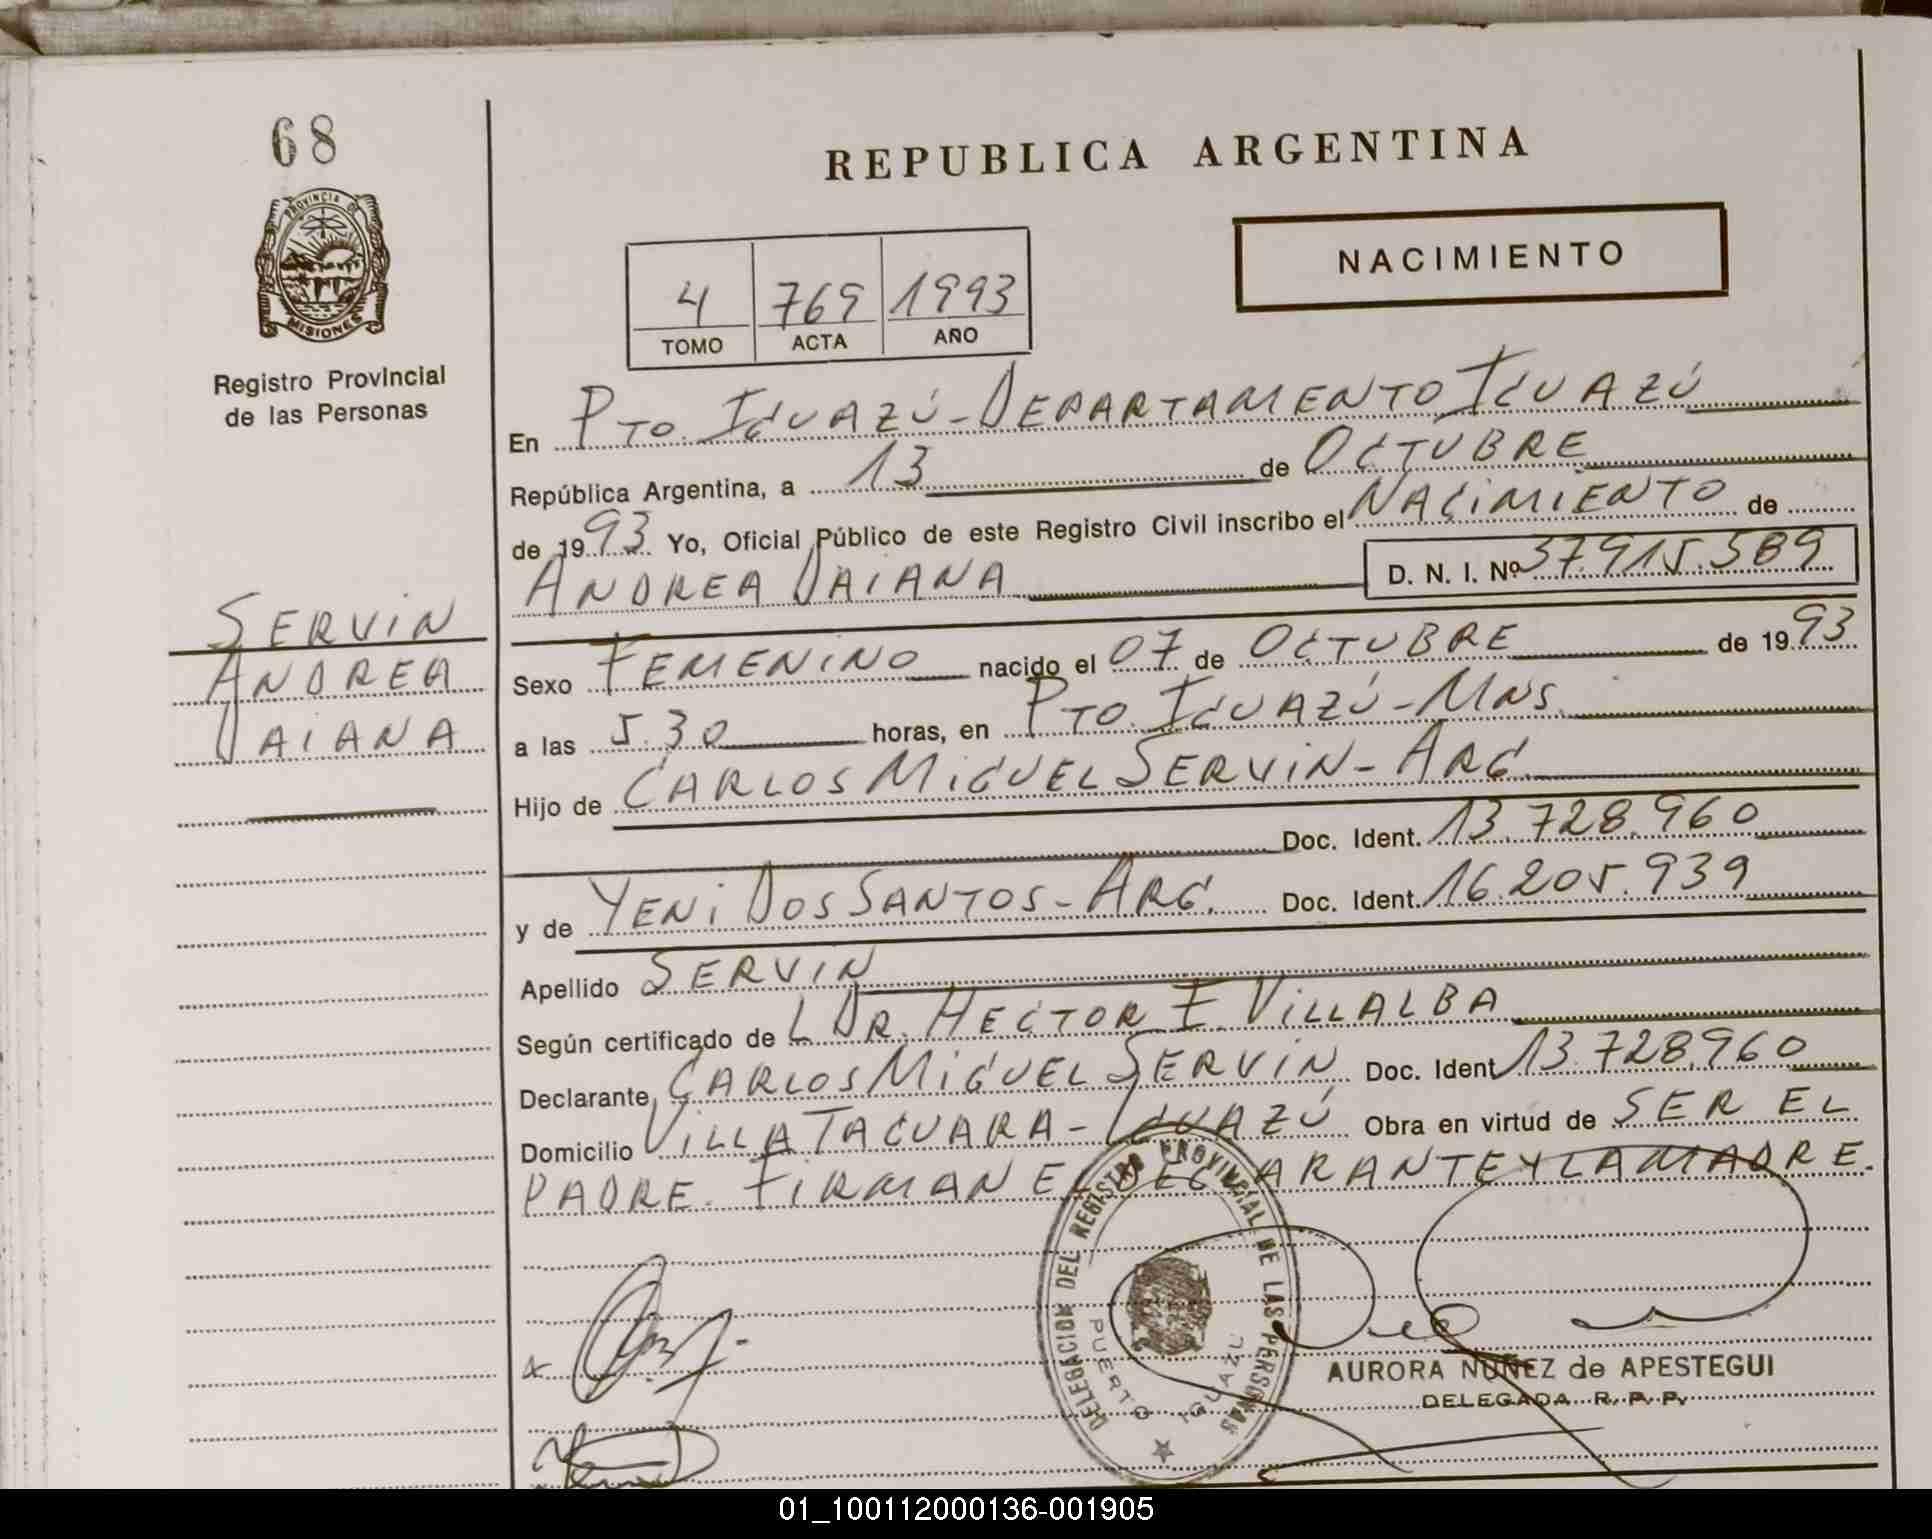 68
PROVINCIA DE
MISIONES
Registro Provincial
de las Personas
SERVIN
ANDREA
DAIANA
REPUBLICA ARGENTINA
NACIMIENTO
4 769 1993
TOMO ACTA AÑO
En PTO. IGUAZÚ - DEPARTAMENTO IGUAZÚ
República Argentina, a 13 de OCTUBRE
de 1993 Yo, Oficial Público de este Registro Civil inscribo el NACIMIENTO de
ANDREA DAIANA D. N. I. Nº 37.915.589
Sexo FEMENINO nacido el 07 de OCTUBRE de 1993
a las 5.30 horas, en PTO. IGUAZÚ - MNS.
Hijo de CARLOS MIGUEL SERVIN - ARG.
Doc. Ident. 13.728.960
y de YENI DOS SANTOS - ARG. Doc. Ident. 16.205.939
Apellido SERVIN
Según certificado de DR. HECTOR F. VILLALBA
Declarante CARLOS MIGUEL SERVIN Doc. Ident 13.728.960
Domicilio VILLA TACUARA - IGUAZÚ Obra en virtud de SER EL
PADRE. FIRMAN EL DECLARANTE Y LA MADRE.
DELEGACION DEL REGISTRO PROVINCIAL DE LAS PERSONAS
PUERTO IGUAZU
AURORA NUÑEZ de APESTEGUI
DELEGADA R. P. P.
01_100112000136-001905